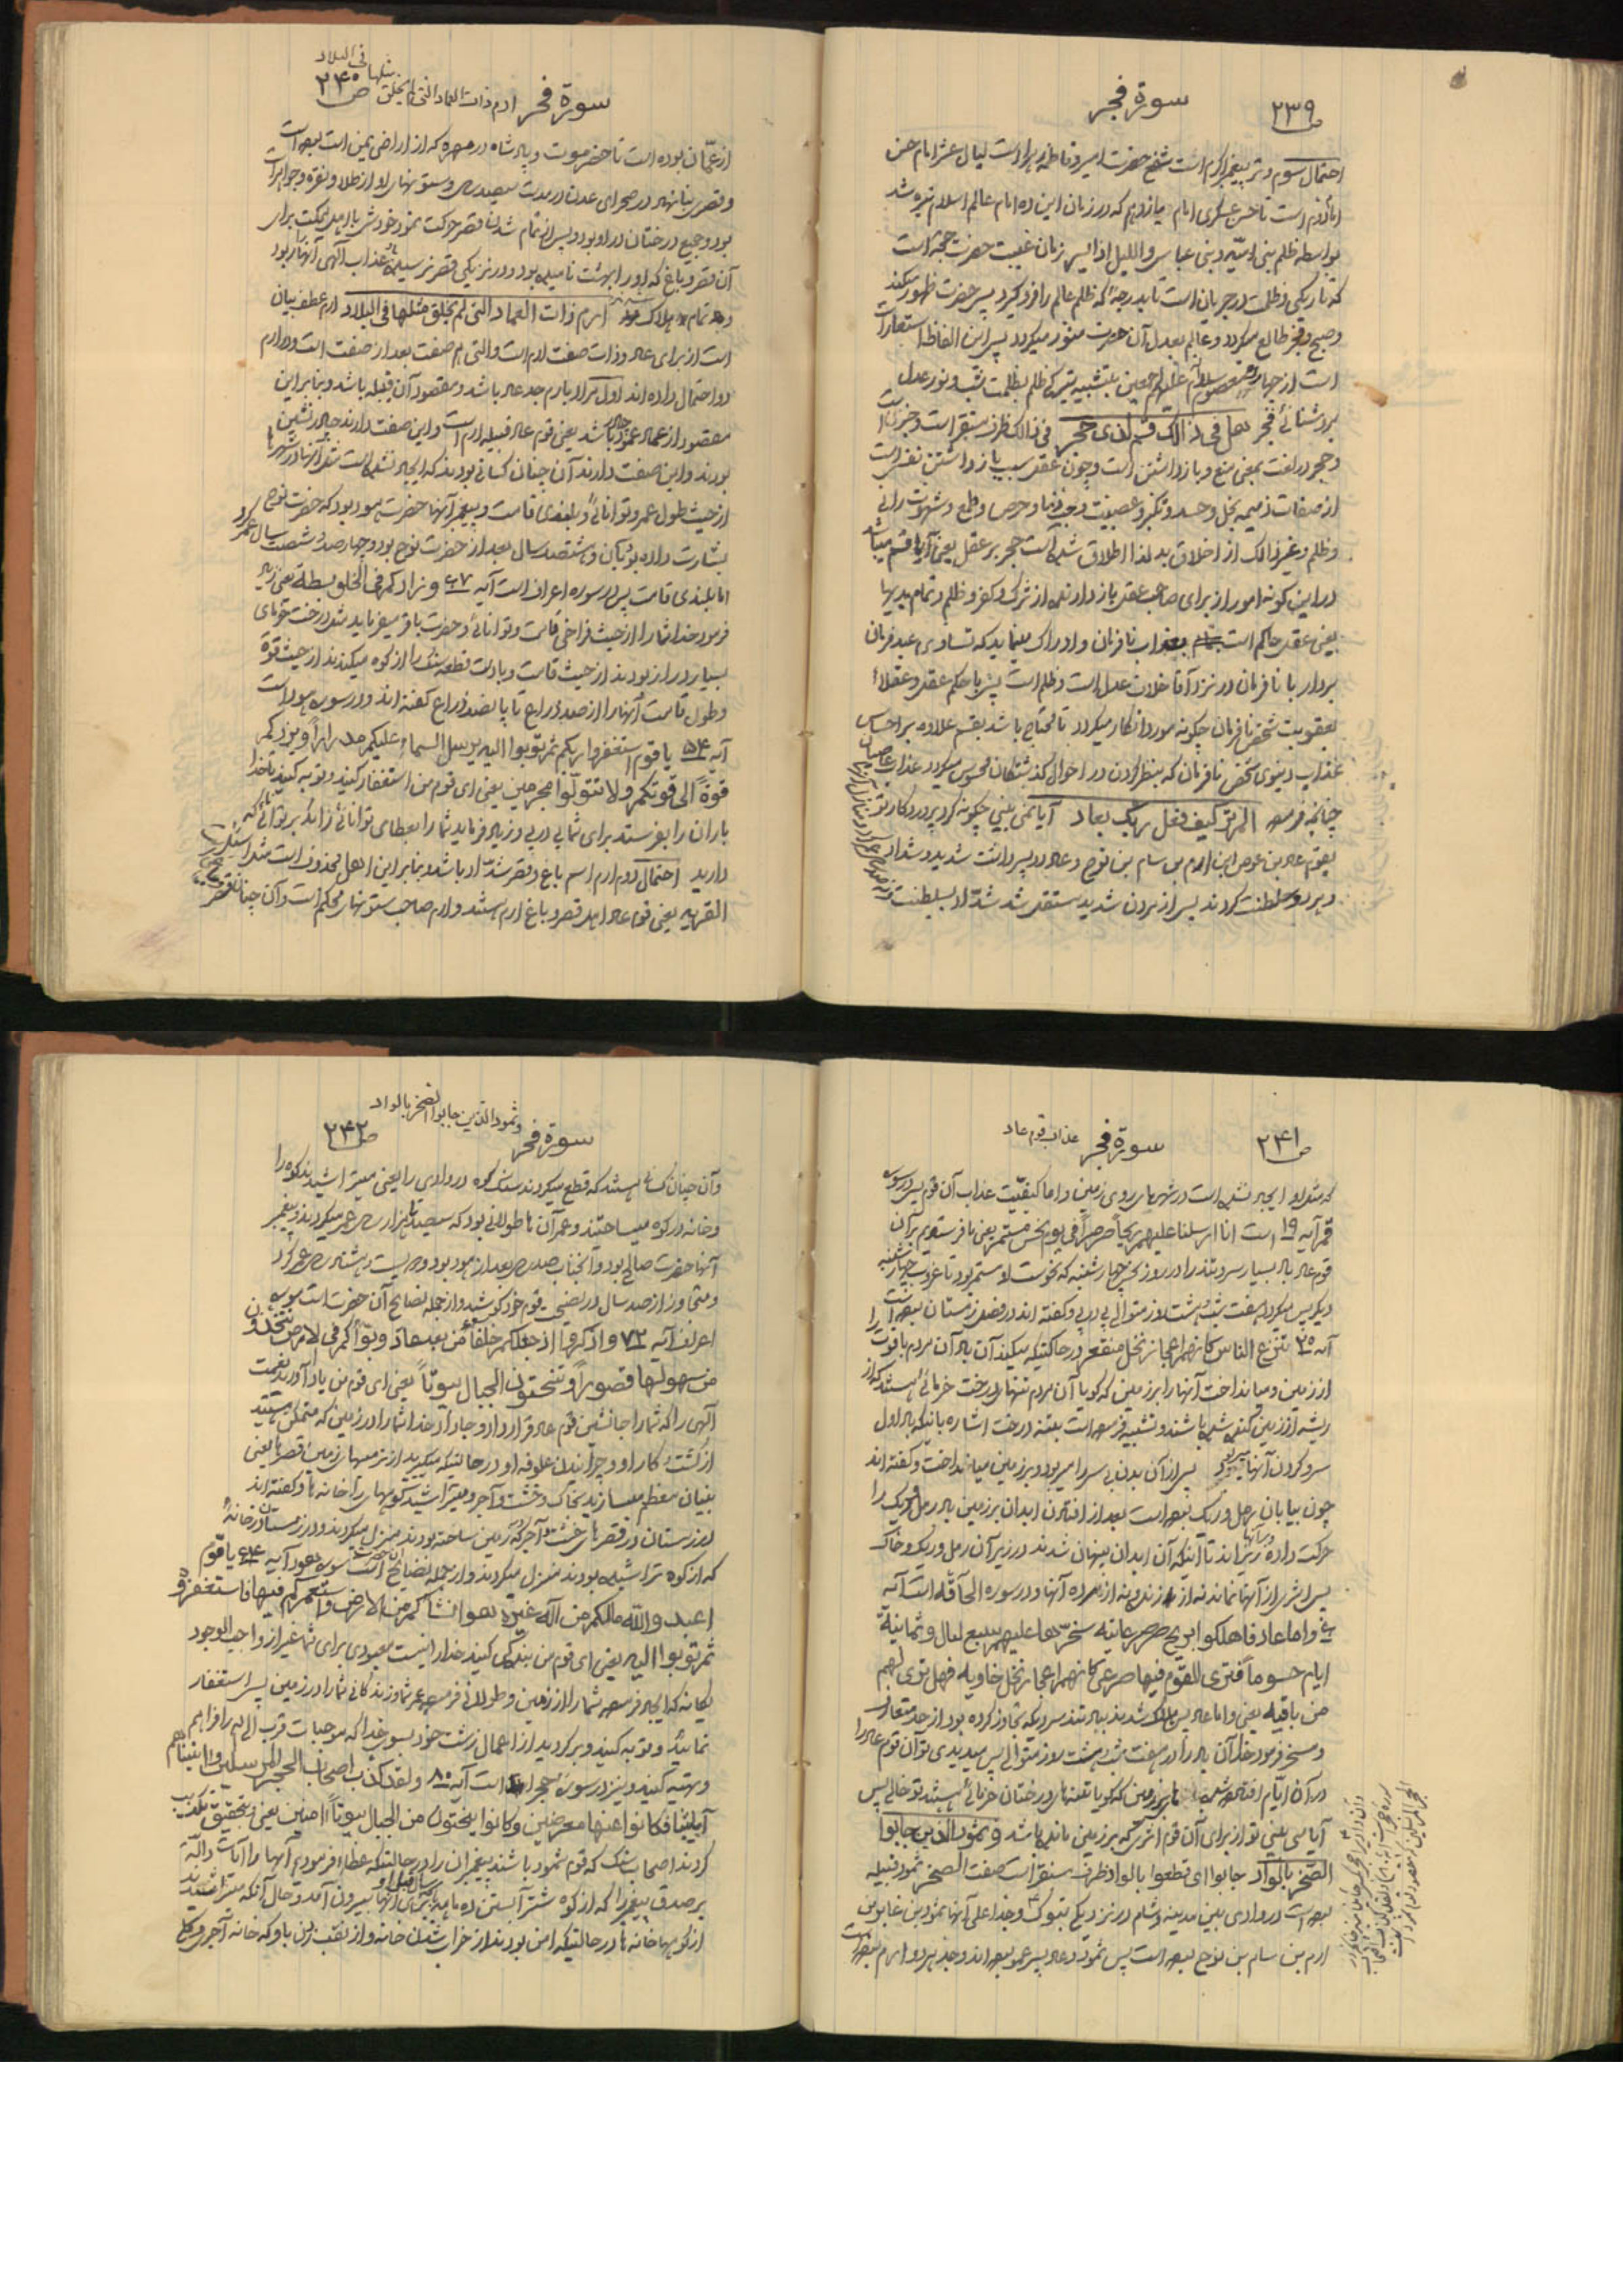 ص ۲۳۹
سورة فجر
احتمال سوم وتر پیغمبر اکرم است شفع حضرت امیر و فاطمه زهرا است لیال عشر امام حسن
است تا حسن عسکری امام یازدهم که در زمان این ده امام عالم اسلام تیره شد
بواسطه ظلم بنی امیّه و بنی عباس واللیل اذا یسر زمان غیبت حضرت حجة است
که تاریکی و ظلمت در جریان است تا بدرجهٔ که ظلم عالم را فرو گیرد پس حضرت ظهور میکند
و صبح و فجر طالع میگردد و عالم بعدل آن حضرت منور میگردد پس این الفاظ استعارات
است از چهارده معصوم سلام الله علیهم اجمعین بتشبیه تیرگی ظلم بظلمت شب و نور عدل
بروشنائی فجر هل فی ذالک قسم لذی حجر فی ذالک ظرف مستقر است و خبر است
و حجر در لغت بمعنی منع و بازداشتن است و چون عقل سبب بازداشتن نفس است
از صفات ذمیمه بخل و حسد و تکبر و عصبیت و حب دنیا و حرص و طمع و شهوت رانی
و ظلم و غیر ذالک از اخلاق بد لذا اطلاق شده است حجر بر عقل یعنی آیا قسم میباشد
در این گونه امور از برای صاحب عقل بازدارنده از شرک و کفر و ظلم و تمام بدیها
یعنی عقل حاکم است بعذاب نافرمان و ادراک مینماید که تساوی عبد فرمان
بردار با نافرمان در نزد آقا خلاف عدل است و ظلم است پس با حکم عقل و عقلاء
بعقوبت شخص نافرمان چگونه مورد انکار میگردد تا محتاج باشد بقسم علاوه بر احساس
عذاب دنیوی شخص نافرمان که بنظر کردن در احوال گذشتگان محسوس میگردد عذاب عاصیان
چنانچه فرموده الم تر کیف فعل ربک بعاد آیا نمی بینی چگونه کرد پروردگار تو
بقوم عاد بن عوص ابن ارم بن سام بن نوح و عاد دو پسر داشت شدید و شداد
و هر دو سلطنت کردند پس از مردن شدید مستقل شد شداد بسلطنت
سورة فجر ارم ذات العماد التی لم یخلق مثلها فی البلاد
ص ۲۴۰
از عمّان بوده است تا حضرموت و پادشاه در مهره که از اراضی یمن است بوده است
و قصری بنا نهاد در صحرای عدن در مدت سیصد سال و ستونهای او از طلا و نقره و جواهرات
بود و جمیع درختان در او بود و پس از تمام شدن قصر حرکت نمود خودش با اهل مملکت برای
آن قصر و باغ که او را بهشت نامیده بود و در نزدیکی قصر نرسیده عذاب الهی آنها را ربود
و تمام هلاک شدند ارم ذات العماد التی لم یخلق مثلها فی البلاد ارم عطف بیان
است از برای عاد و ذات صفت ارم است والتی هم صفت بعد از صفت است و در ارم
دو احتمال داده اند اول مراد بارم جد عاد باشد و مقصود آن قبیله باشد و بنابراین
مقصود از عماد عمود باشد یعنی قوم عاد قبیله ارم است و این صفت دارند چادر نشین
بودند و این صفت دارند آن چنان کسانی بودند که ایجاد نشده است مثل آنها در شهرها
از حیث طول عمر و توانائی و بلندی قامت و پیغمبر آنها حضرت هود بود که حضرت نوح
بشارت داده بود بآن و هشتصد سال بعد از حضرت نوح بود و چهار صد و شصت سال عمر کرد
اما بلندی قامت پس در سوره اعراف است آیه ۶۷ و زادکم فی الخلق بسطة یعنی زیاد
فرمود خدا شما را از حیث فراخی قامت و توانائی و حضرت باقر میفرماید مثل درخت خرمای
بسیار دراز بودند از حیث قامت و با دست قطعه سنگ را از کوه میکندند از حیث قوة
و طول قامت آنها را از صد ذراع تا پانصد ذراع گفته اند و در سوره هود است
آیه ۵۴ یا قوم استغفروا ربکم ثم توبوا الیه یرسل السماء علیکم مدراراً و یزدکم
قوةً الی قوتکم ولا تتولّوا مجرمین یعنی ای قوم من استغفار کنید و توبه کنید تا خدا
باران را بفرستد برای شما پی در پی و زیاد فرماید شما را بعطای توانائی زائد بر توانائی که
دارید احتمال دوم ارم اسم باغ و قصر شداد باشد و بنابراین اهل محذوف است مثل واسئل
القریه یعنی قوم عاد اهل قصر و باغ ارم هستند و ارم صاحب ستونهای محکم است و آن چنان قصر
ص ۲۴۱
سورة فجر عذاب قوم عاد
که مثل او ایجاد نشده است در شهرهای روی زمین و اما کیفیّت عذاب آن قوم پس در سوره
قمر آیه ۱۹ است انا ارسلنا علیهم ریحاً صرصراً فی یوم نحس مستمر یعنی ما فرستادیم بر آن
قوم عاد باد بسیار سرد تند را در روز نحس چهارشنبه که نحوست او مستمر بود تا غروب چهارشنبه
دیگر پس میگردد هفت شب و هشت روز متوالی پی در پی و گفته اند در فصل زمستان بوده است
آیه ۲۰ تنزع الناس کانهم اعجاز نخل منقعر در حالتیکه میکند آن باد آن مردم با قوت را
از زمین و میانداخت آنها را بر زمین که گویا آن مردم تنه های درخت خرمائی هستند که از
ریشه از زمین کنده شده باشند و تشبیه فرموده است بتنه درخت اشاره باینکه باد اول
سر و گردن آنها میربود پس از آن بدن بی سر را میربود و بر زمین میانداخت و گفته اند
چون بیابان رمل و ریگ بوده است بعد از افتادن ابدان بر زمین باد رمل و ریگ را
حرکت داده و بر آنها ریخته اند تا اینکه آن ابدان پنهان شدند در زیر آن رمل و ریگ و خاک
پس اثری از آنها نماند نه از زنده و نه از مرده آنها و در سوره الحآقّه است آیه
۶ و اما عاد فاهلکوا بریح صرصر عاتیه سخّرها علیهم سبع لیال و ثمانیة
ایام حسوماً فتری القوم فیها صرعی کانهم اعجاز نخل خاویه فهل تری لهم
من باقیه یعنی و اما عاد پس هلاک شدند بباد تند سردیکه تجاوز کرده بود از حد متعارف
و مسخر فرمود خدا آن باد را در هفت شب و هشت روز متوالی پس میدیدی تو آن قوم عاد را
در آن ایّام افتاده شده بر زمین که گویا تنه های درختان خرمائی هستند تو خالی پس
آیا می بینی تو از برای آن قوم اثری که بر زمین مانده باشد و ثمود الذین جابوا
الصّخر بالواد جابوا ای قطعوا بالواد ظرف مستقر است صفت الصخر ثمود قبیله
بوده است در وادی بین مدینه و شام در نزدیکی تبوک و جد اعلی آنها ثمود بن عابر بن
ارم بن سام بن نوح بوده است پس ثمود و عاد پسر عمو بوده اند و جد هر دو ارم بوده است
سورة فجر و ثمود الذین جابوا الصّخر بالواد
ص ۲۴۲
و آن چنان کسانی هستند که قطع میکردند سنگ کوه در وادی را یعنی میتراشیدند کوه را
و خانه در کوه میساختند و عمر آنها طولانی بود که سیصد تا هزار سال عمر میکردند و پیغمبر
آنها حضرت صالح بود و آنجناب صد سال بعد از هود بود و دویست و هشتاد سال عمر کرد
و متجاوز از صد سال در نصیحت قوم خود کوشید و از جمله نصایح آن حضرت است سوره
اعراف آیه ۷۳ و اذکروا اذ جعلکم خلفاء من بعد عاد و بوّأکم فی الارض تتخذون
من سهولها قصوراً و تنحتون الجبال بیوتاً یعنی ای قوم من یاد آورید نعمت
الهی را که شما را جانشین قوم عاد قرار داد و جا داد خدا شما را در زمین که متمکن هستید
از کشت و کار او و چرانیدن علوفه او در حالتیکه میگیرید از نرمیهای زمین قصرها یعنی
بنیان معظم میسازید بخاک و خشت و آجر و میتراشید کوههای را خانه ها و گفته اند
در زمستان در قصرهای خشت و آجر که در زمین ساخته بودند منزل میکردند و در زمستان در خانه
که از کوه تراشیده بودند منزل میکردند و از جمله نصایح آن حضرت است سوره هود آیه ۶۴ یا قوم
اعبدوا الله مالکم من اله غیره هو انشأکم من الارض و استعمرکم فیها فاستغفروه
ثم توبوا الیه یعنی ای قوم من بندگی کنید خدا را نیست معبودی برای شما غیر از واجب الوجود
یگانه که ایجاد فرموده شما را از زمین و طولانی فرموده عمر شما و زندگانی شما را در زمین پس استغفار
نمائید و توبه کنید و برگردید از اعمال زشت خود بسوی خدا که موجبات قرب الهی را فراهم
و تهیه کنید و نیز در سوره حجر است آیه ۸۰ و لقد کذب اصحاب الحجر المرسلین و اتیناهم
آیاتنا فکانوا عنها معرضین و کانوا ینحتون من الجبال بیوتاً امنین یعنی و بتحقیق تکذیب
کردند اصحاب سنگ که قوم ثمود باشند پیغمبران را در حالتیکه عطاء فرمودیم آنها را آیات داله
بر صدق پیغمبر را که از کوه شتر آبستن ده ماهه برای آنها بیرون آمد و حال آنکه میتراشیدند
از کوهها خانه ها در حالتیکه امن بودند از خراب شدن خانه و از نقب زدن باو که خانه آجری و گلی